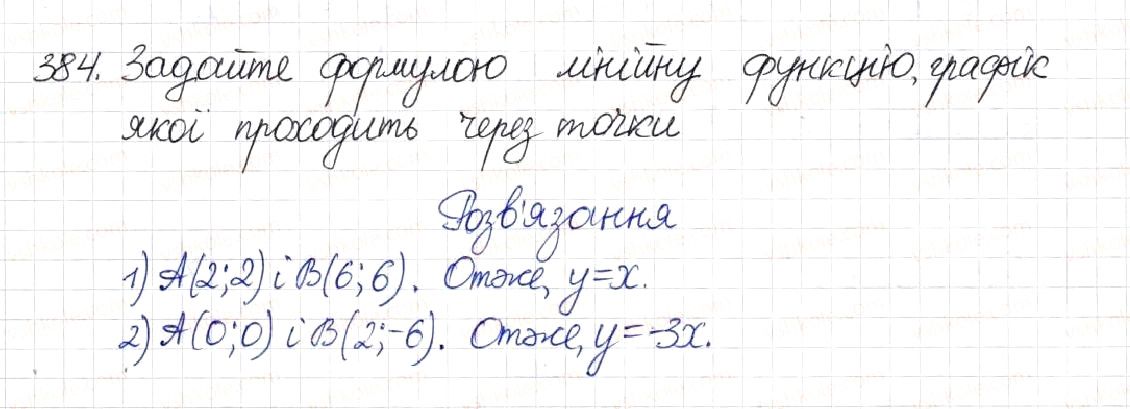 384. Задайте формулою лінійну функцію, графік
якої проходить через точки
Розв'язання
1) A(2;2) і B(6;6). Отже, y=x.
2) A(0;0) і B(2;-6). Отже, y=-3x.